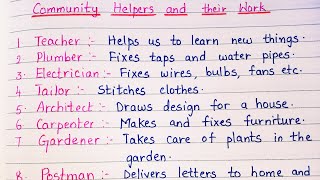 Community Helpers and their Work
1 Teacher :- Helps us to learn new things.
2 Plumber :- Fixes taps and water pipes.
3. Electrician :- Fixes wires, bulbs, fans etc.
4 Tailor :- Stitches clothes.
5. Architect :- Draws design for a house.
6 Carpenter :- Makes and fixes furniture.
7 Gardener :- Takes care of plants in the
garden.
8. Postman :- Delivers letters to home and